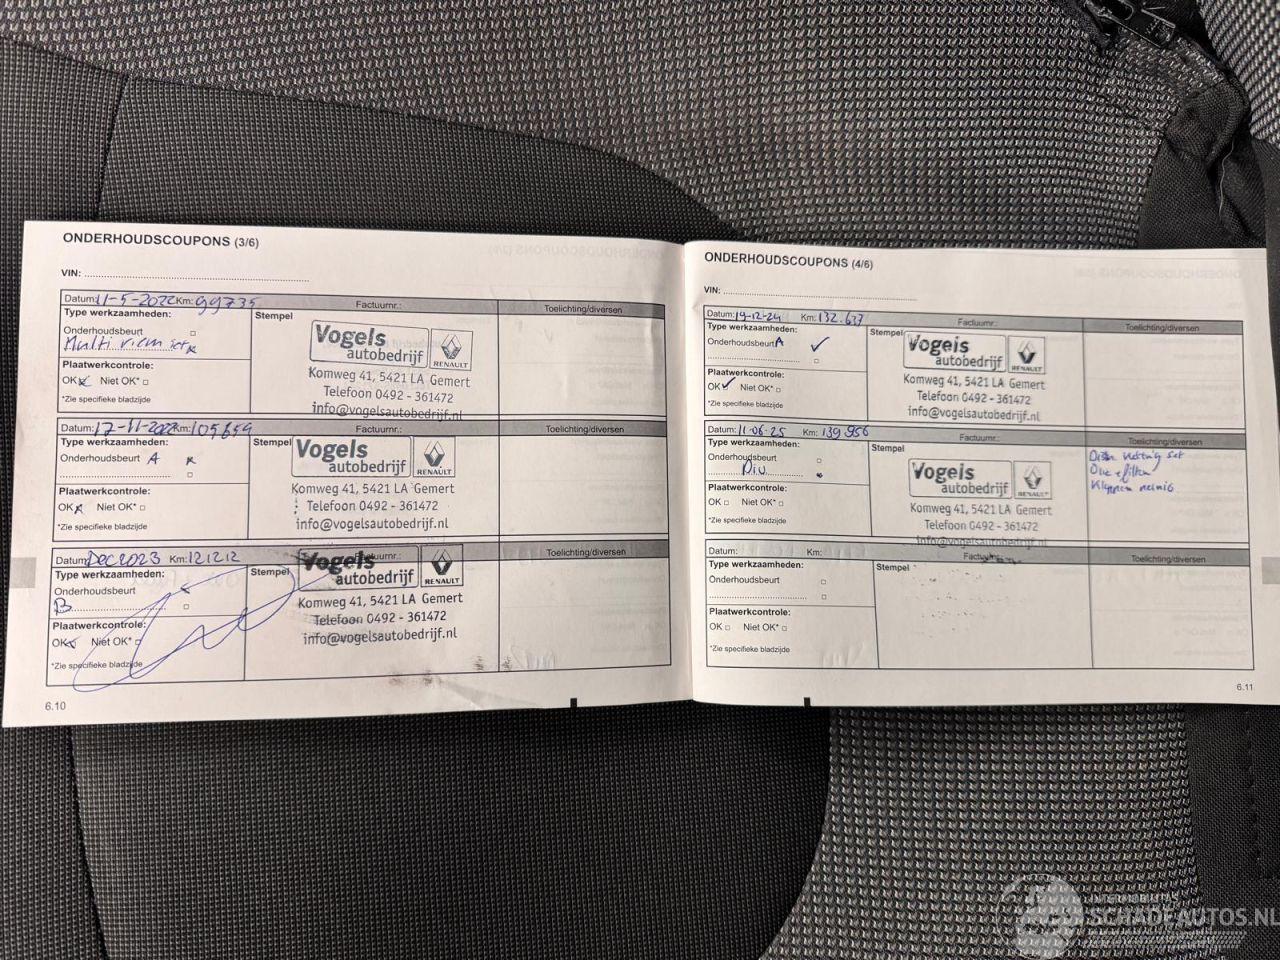 ONDERHOUDSCOUPONS (3/6)
VIN:
Datum: 11-5-2022 Km: 99735 Factuurnr.: Toelichting/diversen
Type werkzaamheden: Stempel
Onderhoudsbeurt
Multi riem set
Plaatwerkcontrole:
OK Niet OK*
*Zie specifieke bladzijde
Vogels
autobedrijf
RENAULT
Komweg 41, 5421 LA Gemert
Telefoon 0492 - 361472
info@vogelsautobedrijf.nl
Datum: 17-11-2022 Km: 105659 Factuurnr.: Toelichting/diversen
Type werkzaamheden: Stempel
Onderhoudsbeurt A
Plaatwerkcontrole:
OK Niet OK*
*Zie specifieke bladzijde
Vogels
autobedrijf
RENAULT
Komweg 41, 5421 LA Gemert
Telefoon 0492 - 361472
info@vogelsautobedrijf.nl
Datum: Dec 2023 Km: 121212 Factuurnr.: Toelichting/diversen
Type werkzaamheden: Stempel
Onderhoudsbeurt
B
Plaatwerkcontrole:
OK Niet OK*
*Zie specifieke bladzijde
Vogels
autobedrijf
RENAULT
Komweg 41, 5421 LA Gemert
Telefoon 0492 - 361472
info@vogelsautobedrijf.nl
6.10
ONDERHOUDSCOUPONS (4/6)
VIN:
Datum: 19-12-24 Km: 132.637 Factuurnr.: Toelichting/diversen
Type werkzaamheden: Stempel
Onderhoudsbeurt A
Plaatwerkcontrole:
OK Niet OK*
*Zie specifieke bladzijde
Vogels
autobedrijf
RENAULT
Komweg 41, 5421 LA Gemert
Telefoon 0492 - 361472
info@vogelsautobedrijf.nl
Datum: 11-06-25 Km: 139956 Factuurnr.: Toelichting/diversen
Type werkzaamheden: Stempel
Onderhoudsbeurt
Div
Plaatwerkcontrole:
OK Niet OK*
*Zie specifieke bladzijde
Vogels
autobedrijf
RENAULT
Komweg 41, 5421 LA Gemert
Telefoon 0492 - 361472
info@vogelsautobedrijf.nl
set
Olie filter
Kleppen
Datum: Km: Factuurnr.: Toelichting/diversen
Type werkzaamheden: Stempel
Onderhoudsbeurt
Plaatwerkcontrole:
OK Niet OK*
*Zie specifieke bladzijde
6.11
SCHADEAUTOS.NL